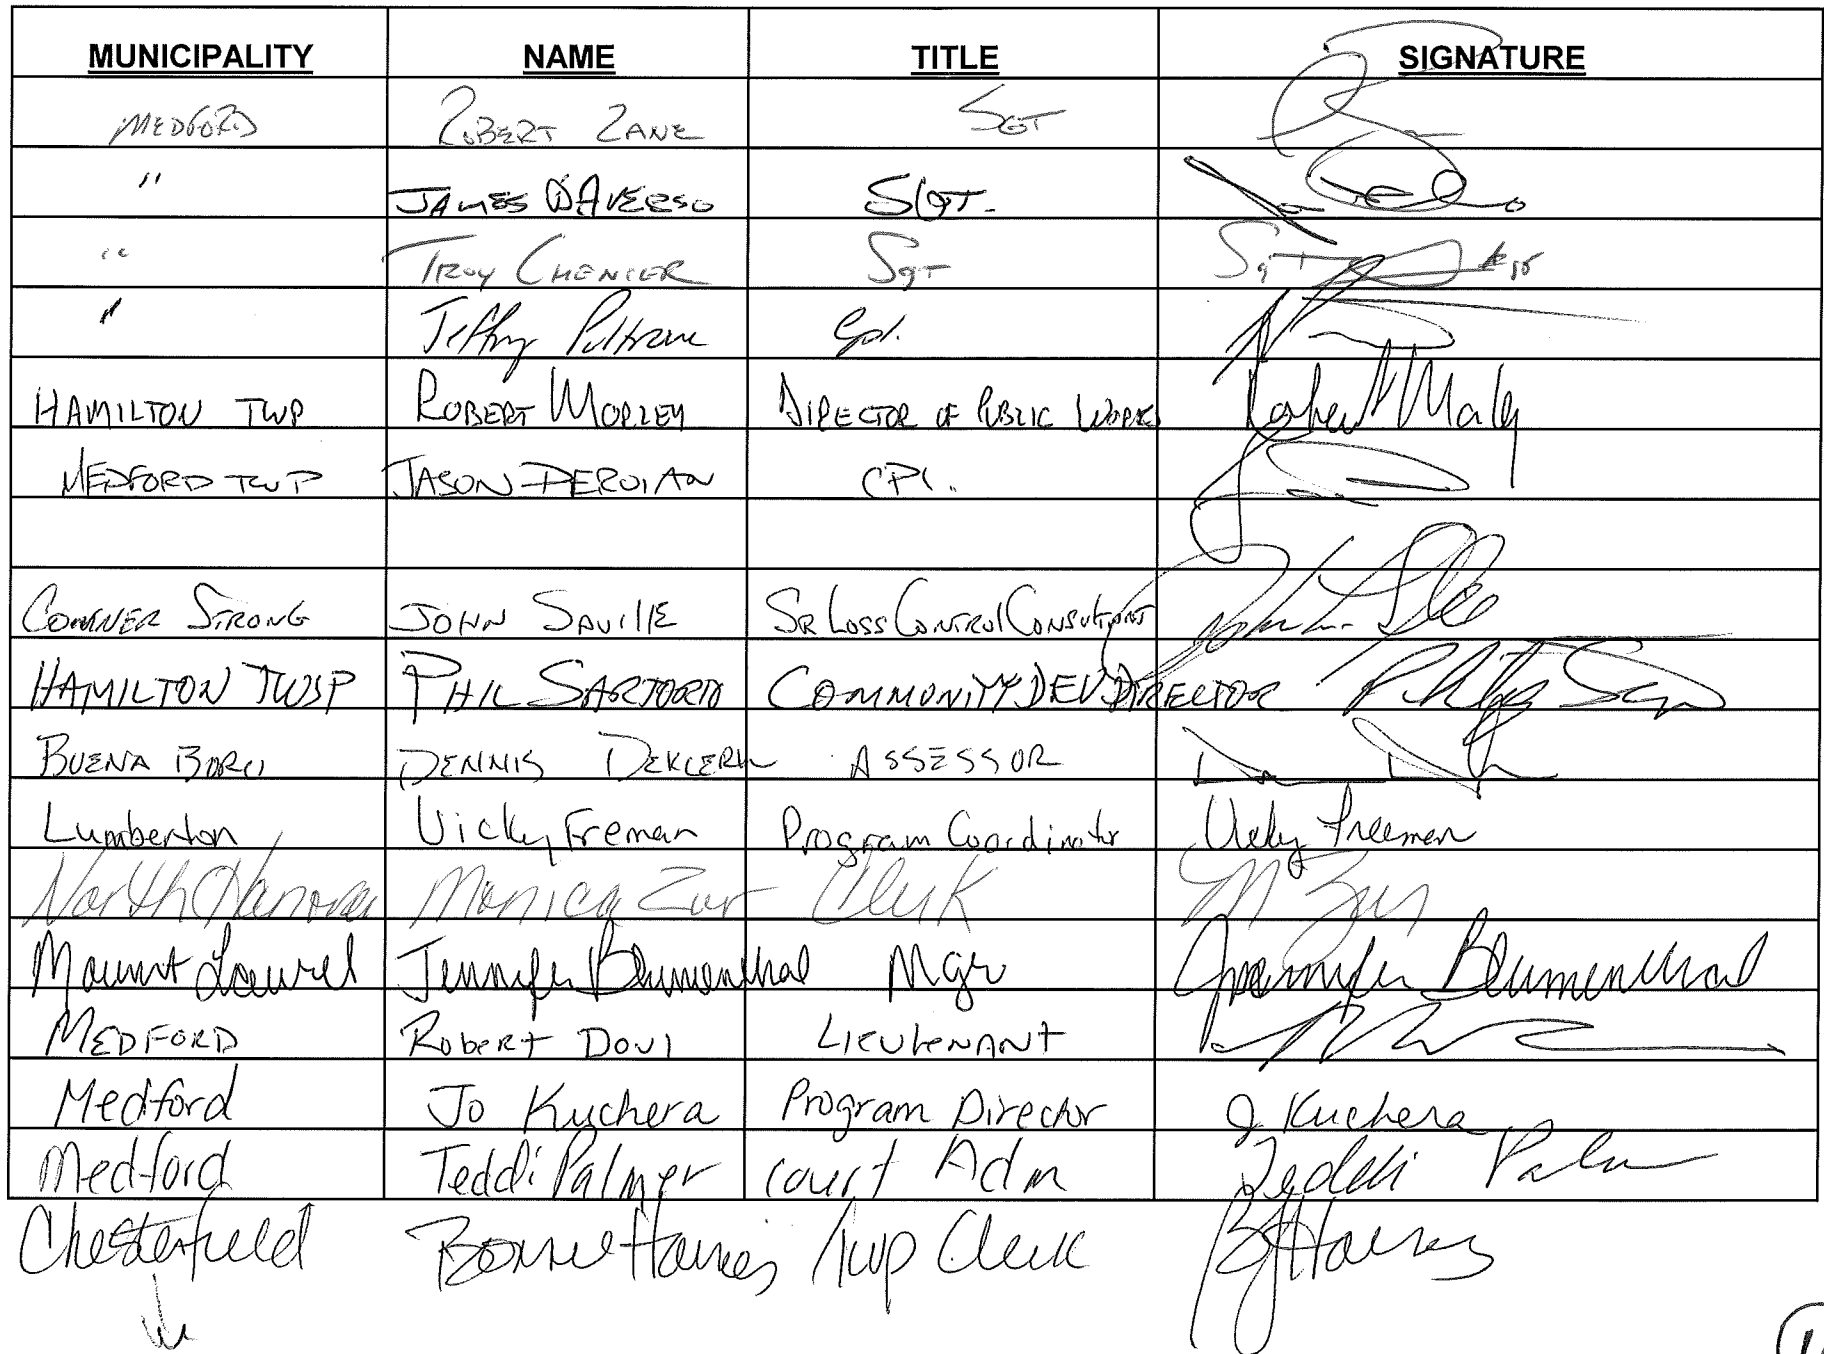 MUNICIPALITY NAME TITLE SIGNATURE
MEDFORD ROBERT ZANE SGT
" JAMES D'AVERSO SGT.
" TROY CHENIER Sgt Sgt
" Jeffrey Cpl.
HAMILTON TWP ROBERT MORLEY DIRECTOR OF PUBLIC WORKS Robert Morley
MEDFORD TWP JASON DEROIAN CPL.
CONNER STRONG JOHN SAVILLE SR LOSS CONTROL CONSULTANT
HAMILTON TWSP PHIL SARTORIO COMMUNITY DEV DIRECTOR
BUENA BORO DENNIS DEKLERK ASSESSOR
Lumberton Vicky Freman Program Coordinator Vicky Freeman
North Hanover Monica Zur Clerk M Zur
Mount Laurel Jennifer Blumenthal Mgr Jennifer Blumenthal
MEDFORD Robert Dovi Lieutenant
Medford Jo Kuchera Program Director J Kuchera
Medford Teddi Palmer Court Adm Teddi Palmer
Chesterfield Bonnie Haines Twp Clerk B Haines